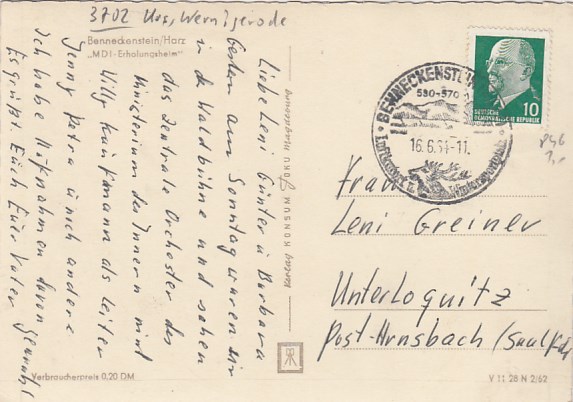 3702 Krs. Wernigerode
Benneckenstein/Harz
„MDI-Erholungsheim"
Liebe Leni Günter u Barbara
Gestern am Sonntag waren wir
in de Waldbühne und sahen
das Zentrale Orchester des
Ministerium des Innern mit
Willy Kaufmann als Leiter
Jenny Petra u noch andere
Ich habe Aufnahmen davon gemacht
Es grüßt Euch Euer Vater
Verbraucherpreis 0,20 DM
KONSUM
BENNECKENSTEIN
530-570
16.6.64-11
Luftkurort u. Wintersportplatz
10
DEUTSCHE
DEMOKRATISCHE REPUBLIK
Frau
Leni Greiner
Unterloquitz
Post-Arnsbach (Saalfd
V 11 28 N 2/62